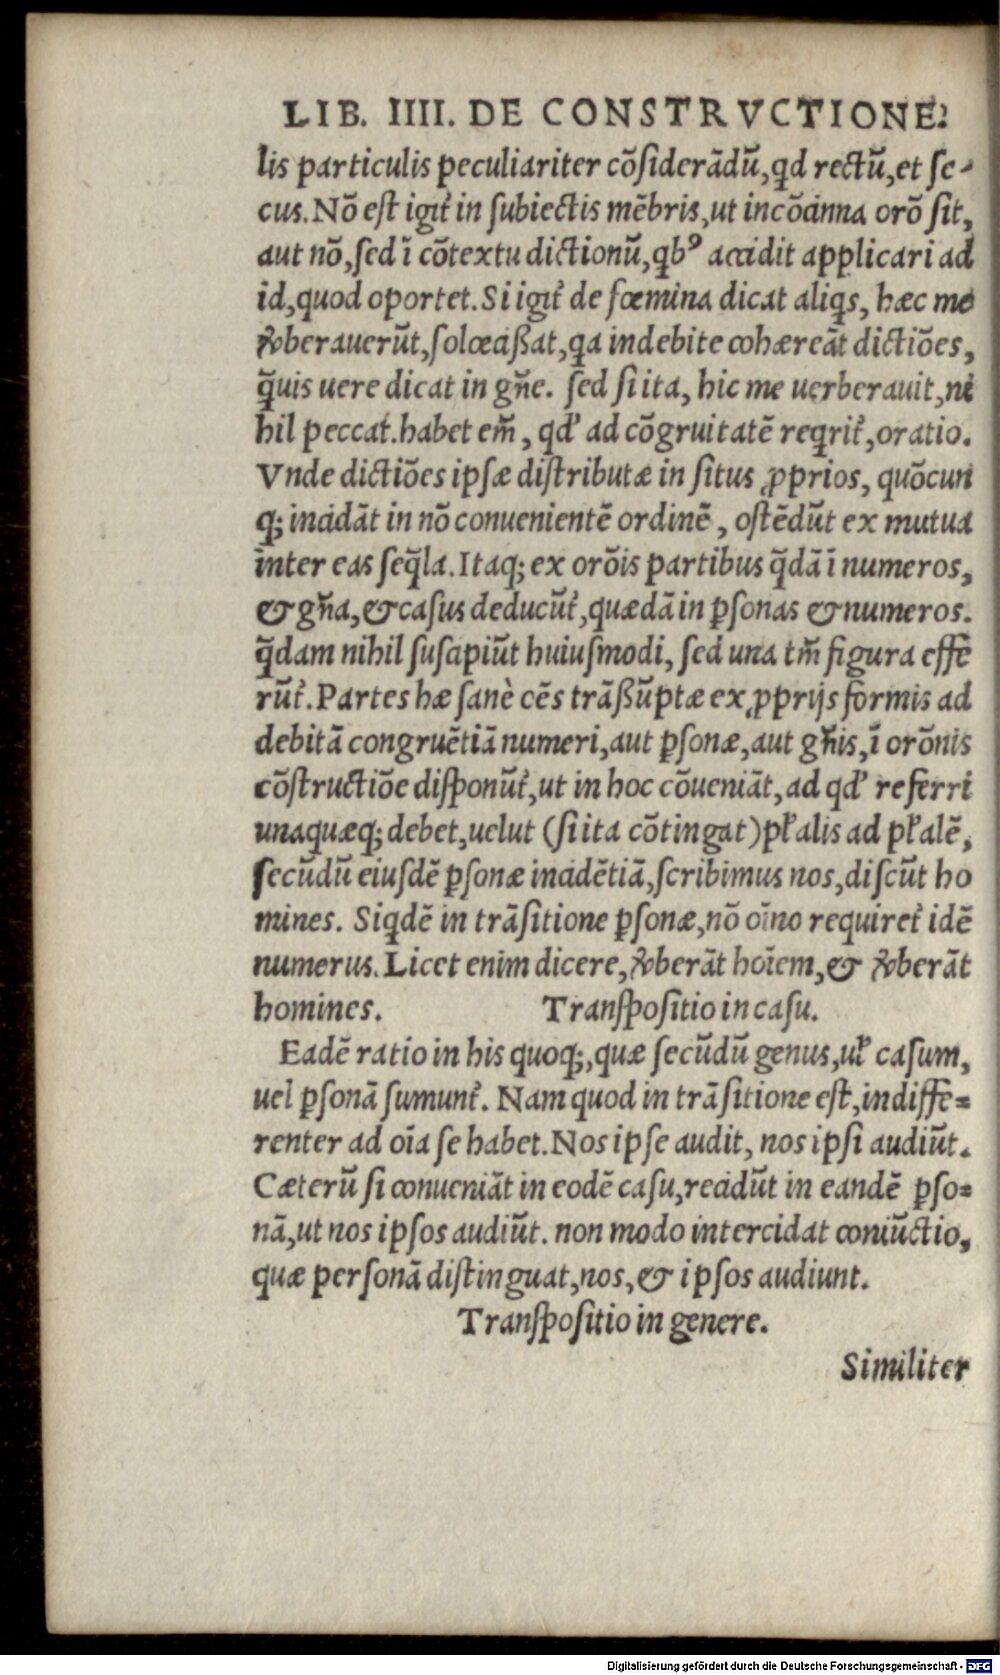 LIB. IIII. DE CONSTRVCTIONE.
lis particulis peculiariter cõſiderãdũ, qd rectũ, et ſe-
cus. Nõ eſt igit̃ in ſubiectis mẽbris, ut incõcinna orõ ſit,
aut nõ, ſed ĩ cõtextu dictionũ, qb⁹ accidit applicari ad
id, quod oportet. Si igit̃ de fœmina dicat aliqs, hæc me
ꝟberauerũt, ſolœcißat, qa indebite cohæreãt dictiões,
q̃uis uere dicat in gñe. ſed ſi ita, hic me uerberauit, ni
hil peccat. habet em̃, qd' ad cõgruitatẽ reqrit̃, oratio.
Vnde dictiões ipſæ diſtributæ in ſitus ꝓprios, quõcun
q; incidãt in nõ conuenientẽ ordinẽ, oſtẽdũt ex mutua
inter eas ſeq̃la. Itaq; ex orõis partibus q̃dã ĩ numeros,
& gña, & caſus deducũt̃, quædã in ꝑſonas & numeros.
q̃dam nihil ſuſcipiũt huiuſmodi, ſed una tm̃ figura effe
rũt̃. Partes hæ ſanè cẽs trãßũptæ ex ꝓprijs formis ad
debitã congruẽtiã numeri, aut ꝑſonæ, aut gñis, ĩ orõnis
cõſtructiõe diſponũt̃, ut in hoc cõueniãt, ad qd' referri
unaquæq; debet, uelut (ſi ita cõtingat) pl̃alis ad pl̃alẽ,
ſecũdũ eiuſdẽ ꝑſonæ incidẽtiã, ſcribimus nos, diſcũt ho
mines. Siqdẽ in trãſitione ꝑſonæ, nõ oĩno requiret̃ idẽ
numerus. Licet enim dicere, ꝟberãt hoĩem, & ꝟberãt
homines. Tranſpoſitio in caſu.
Eadẽ ratio in his quoq;, quæ ſecũdũ genus, ul̃ caſum,
uel ꝑſonã ſumunt̃. Nam quod in trãſitione eſt, indiffe=
renter ad oĩa ſe habet. Nos ipſe audit, nos ipſi audiũt.
Cæterũ ſi conueniãt in eodẽ caſu, recidũt in eandẽ ꝑſo=
nã, ut nos ipſos audiũt. non modo intercidat coniũctio,
quæ perſonã diſtinguat, nos, & ipſos audiunt.
Tranſpoſitio in genere.
Similiter
Digitalisierung gefördert durch die Deutsche Forschungsgemeinschaft - DFG